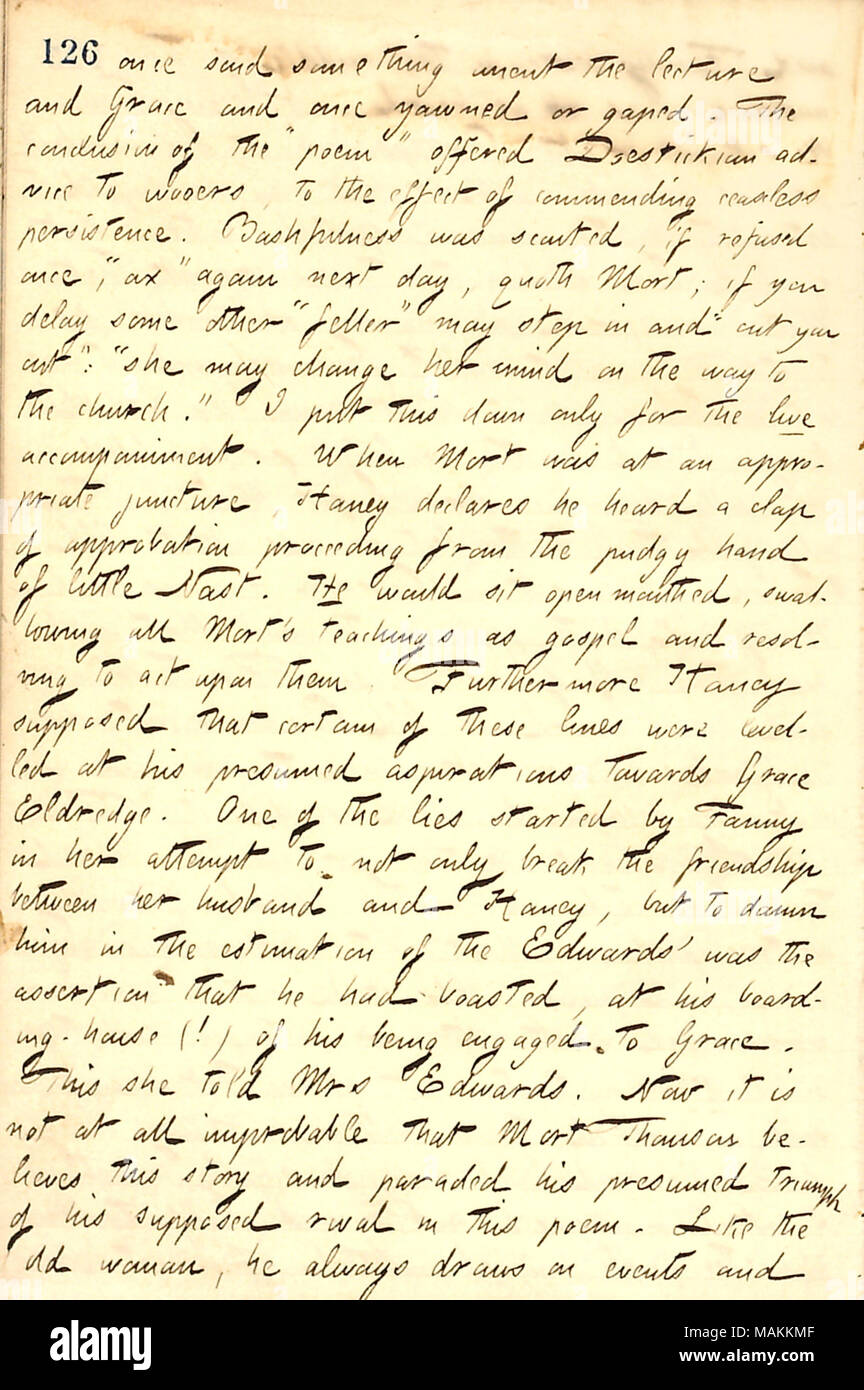 126 once said something anent the lecture
and Grace and once yawned or gaped. The
conclusion of the "poem" offered Doestickian ad-
vice to wooers, to the effect of commending ceaseless
persistence. Bashfulness was scouted, if refused
once, "ax" again next day, quoth Mort; if you
delay some other "feller" may step in and "cut you
out": "she may change her mind on the way to
the church." I put this down only for the live
accompaniment. When Mort was at an appro-
priate juncture, Haney declares he heard a clap
of approbation proceeding from the pudgy hand
of little Nast. He would sit open mouthed, swal-
lowing all Mort's teachings as gospel and resol-
ving to act upon them. Furthermore Haney
supposed that certain of these lines were level-
led at his presumed aspirations towards Grace
Eldredge. One of the lies started by Fanny
in her attempt to not only break the friendship
between her husband and Haney, but to damn
him in the estimation of the Edwards' was the
assertion that he had boasted, at his board-
ing-house (!) of his being engaged to Grace.
This she told Mrs Edwards. Now it is
not at all improbable that Mort Thomson be-
lieves this story and paraded his presumed triumph
of his supposed rival in this poem. Like the
old woman, he always draws on events and
alamy
Image ID: MAKKMF
www.alamy.com